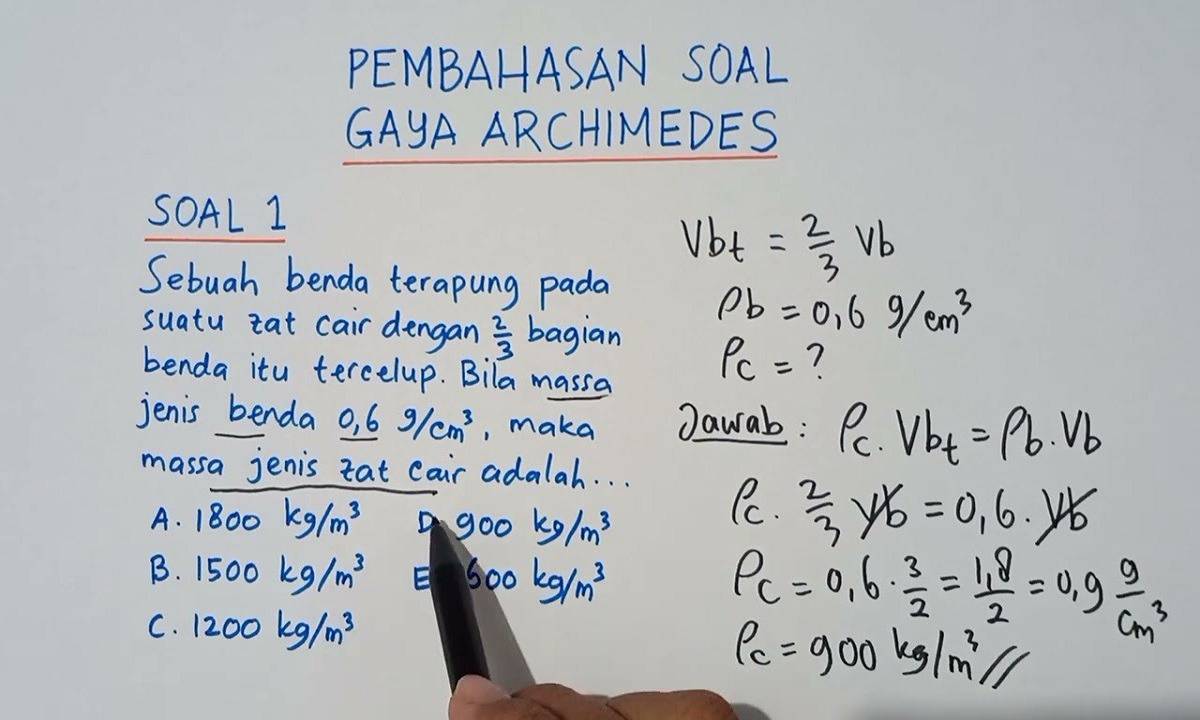 PEMBAHASAN SOAL
GAYA ARCHIMEDES
SOAL 1
Sebuah benda terapung pada
suatu zat cair dengan 2/3 bagian
benda itu tercelup. Bila massa
jenis benda 0,6 g/cm³, maka
massa jenis zat cair adalah...
A. 1800 kg/m³
B. 1500 kg/m³
C. 1200 kg/m³
D 900 kg/m³
E 600 kg/m³
Vbt = 2/3 Vb
ρb = 0,6 g/cm³
ρc = ?
Jawab : ρc . Vbt = ρb . Vb
ρc . 2/3 Vb = 0,6 . Vb
ρc = 0,6 . 3/2 = 1,8/2 = 0,9 g/cm³
ρc = 900 kg/m³ //